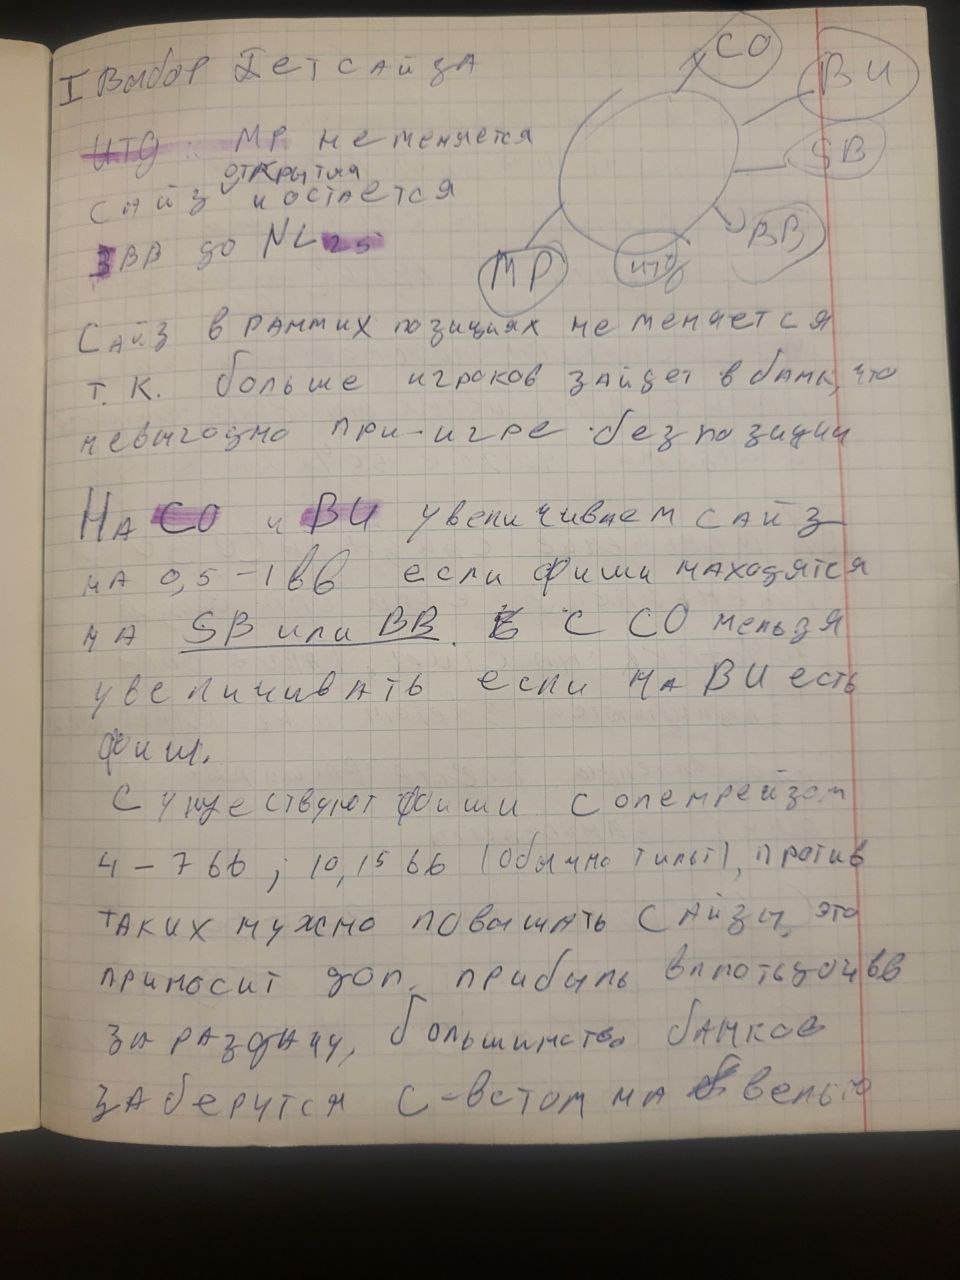 I Выбор Бетсайза
UTG MP не меняется
сайз открытия и остается
3BB до NL25
CO
BU
SB
BB
UTG
MP
Сайз в ранних позициях не меняется
т.к. больше игроков зайдет в банк, что
невыгодно при игре без позиции
На CO и BU увеличиваем сайз
на 0,5-1bb если фиши находятся
на SB или BB. С CO нельзя
увеличивать если на BU есть
фиш.
Существуют фиши с опенрейзом
4-7bb; 10,15bb (обычно тильт), против
таких нужно повышать сайзы, это
приносит доп. прибыль вплоть до 4BB
за раздачу, большинство банков
заберутся с-бетом на велью